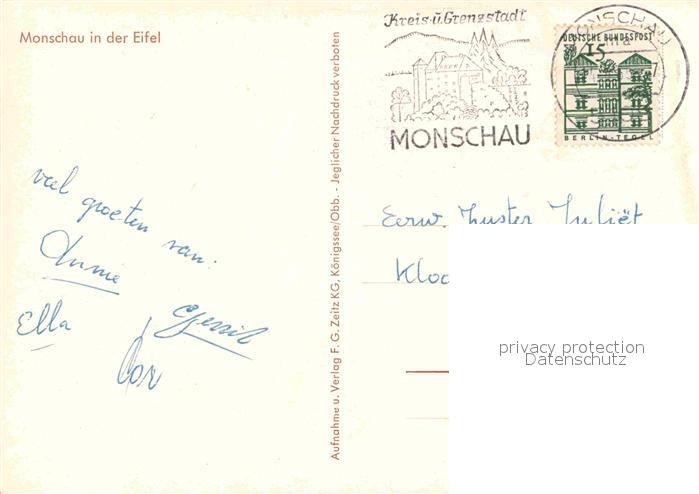 Monschau in der Eifel
Kreis- ü. Grenzstadt
MONSCHAU
MONSCHAU
DEUTSCHE BUNDESPOST
15
BERLIN-TEGEL
Aufnahme u. Verlag F. G. Zeitz KG, Königssee/Obb. - Jeglicher Nachdruck verboten
veel groeten van:
Annie
Gerrit
Ella
Cor
Eerw. Zuster Juliët
privacy protection
Datenschutz